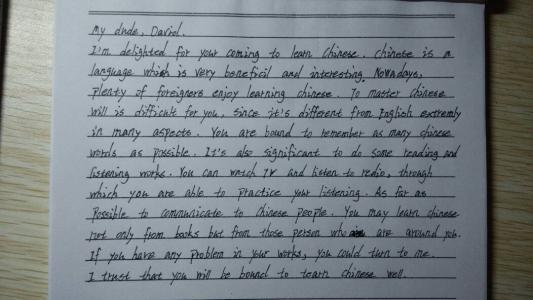 my dude, David.
I'm delighted for your coming to learn Chinese. Chinese is a
language which is very beneficil and interesting. Nowadays,
plenty of foreigners enjoy learning chinese. To master Chinese
will is difficult for you, since it's different from English extremly
in many aspects. You are bound to remember as many chinese
words as possible. It's also significant to do some reading and
listening works. You can watch TV and listen to redio, through
which you are able to practice your listening. As far as
possible to communicate to Chinese people. You may learn chinese
not only from books but from those person who are around you.
If you have any problem in your works, you could turn to me.
I trust that you will be bound to learn Chinese well.